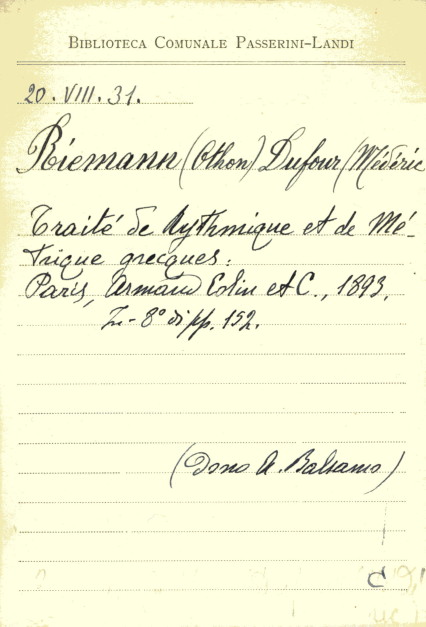 BIBLIOTECA COMUNALE PASSERINI-LANDI
20. VIII. 31.
Riemann (Othon) Dufour (Médéric
Traité de Rythmique et de Mé-
trique grecques:
Paris, Armand Colin et C., 1893,
In-8° di pp. 152.
(Dono A. Balsamo)
C